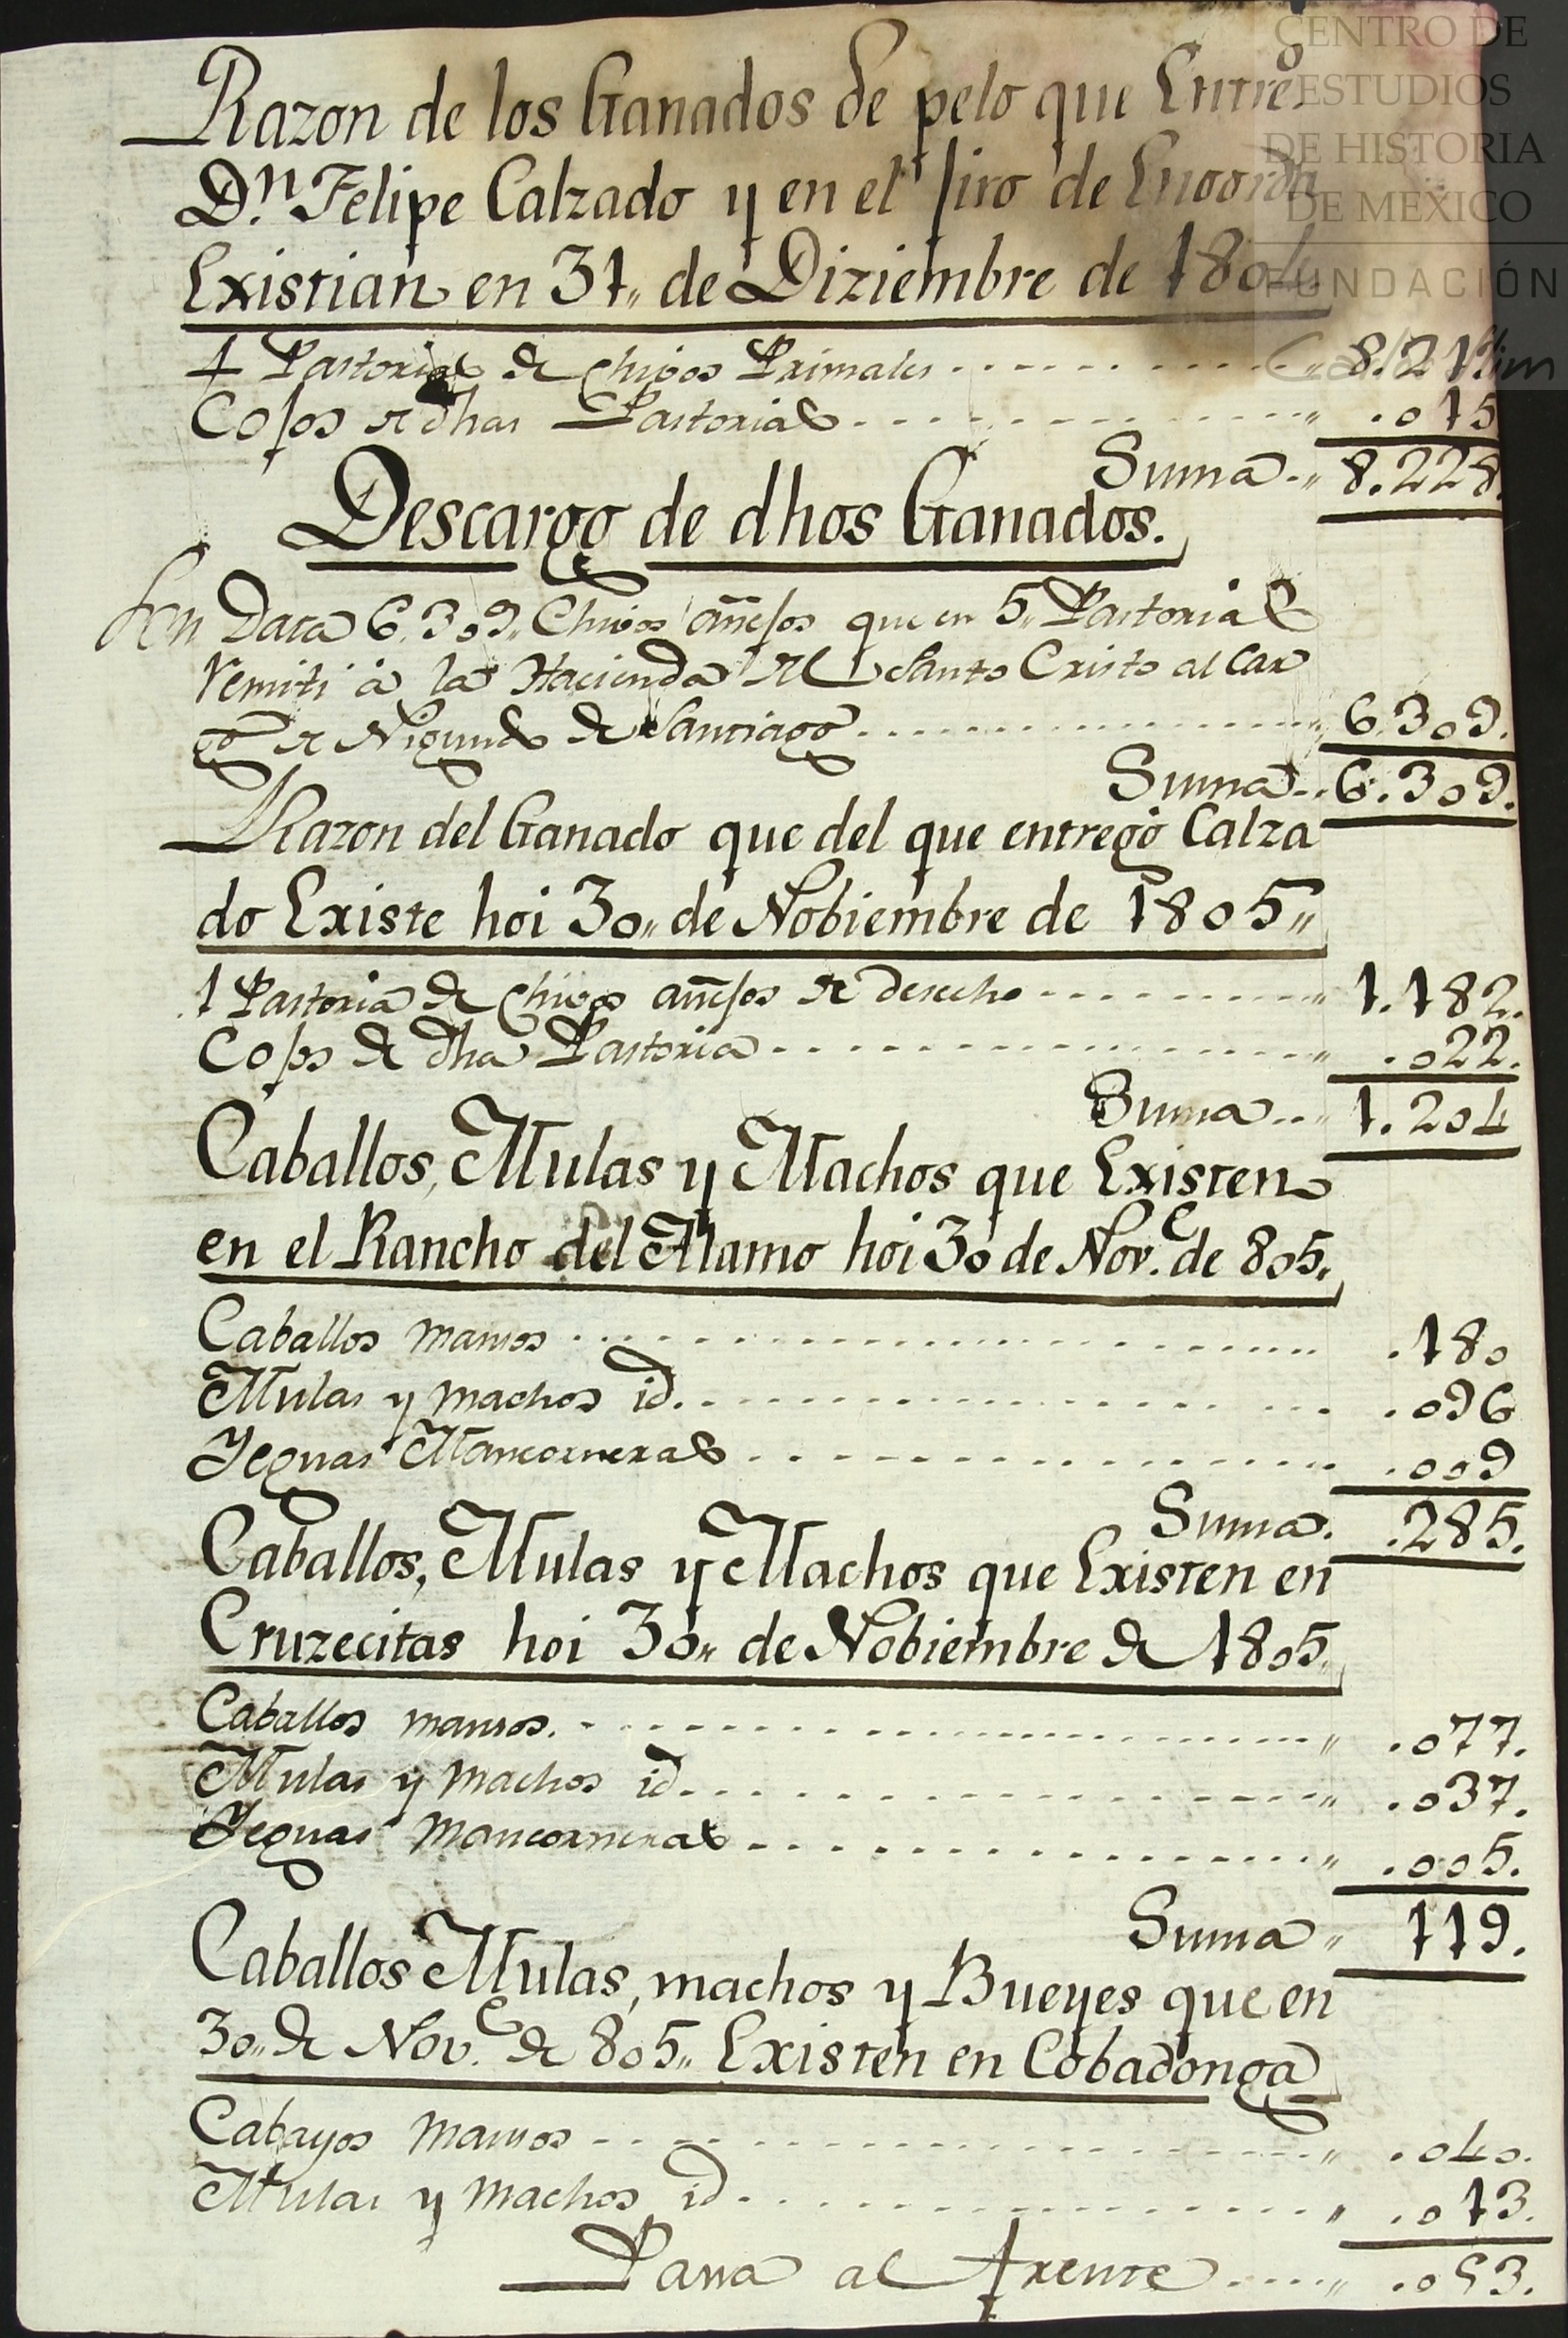 Razon de los Ganados de pelo que Entregó
Dn. Felipe Calzado y en el Jiro de
Existian en 31,, de Diziembre de 1804
4 Pastorias de Chivos Primales 8.213
Cojos de dhas Pastorias .015
Suma 8.228.
Descargo de dhos Ganados.
Son Data 6.309,, Chivos añejos que en 5,, Pastorias
remití á la Hacienda del Santo Cristo al Car
go de Santiago 6.309.
Suma 6.309.
Razon del Ganado que del que entregó Calza
do Existe hoi 30,, de Nobiembre de 1805,,
1 Pastoria de Chivos añejos de desecho 1.182.
Cojos de dha Pastoria .022.
Suma 1.204
Caballos, Mulas y Machos que Existen
en el Rancho del Alamo hoi 30 de Nove. de 805,,
Caballos mansos .180
Mulas y machos id. .096
Yeguas Mancorneras .009
Suma. .285.
Caballos, Mulas y Machos que Existen en
Cruzecitas hoi 30,, de Nobiembre de 1805,,
Caballos mansos. .077.
Mulas y machos id. .037.
Yeguas mancorneras .005.
Suma 119.
Caballos Mulas, machos y Bueyes que en
30,, de Nove. de 805,, Existen en Cobadonga
Cabayos Mansos .040.
Mulas y Machos id. .013.
Passa al frente .053.
CENTRO DE
ESTUDIOS
DE HISTORIA
DE MÉXICO
FUNDACIÓN
Carlos Slim